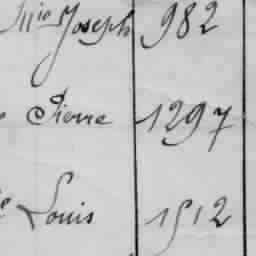 Joseph 982
Pierre 1297
Louis 1512